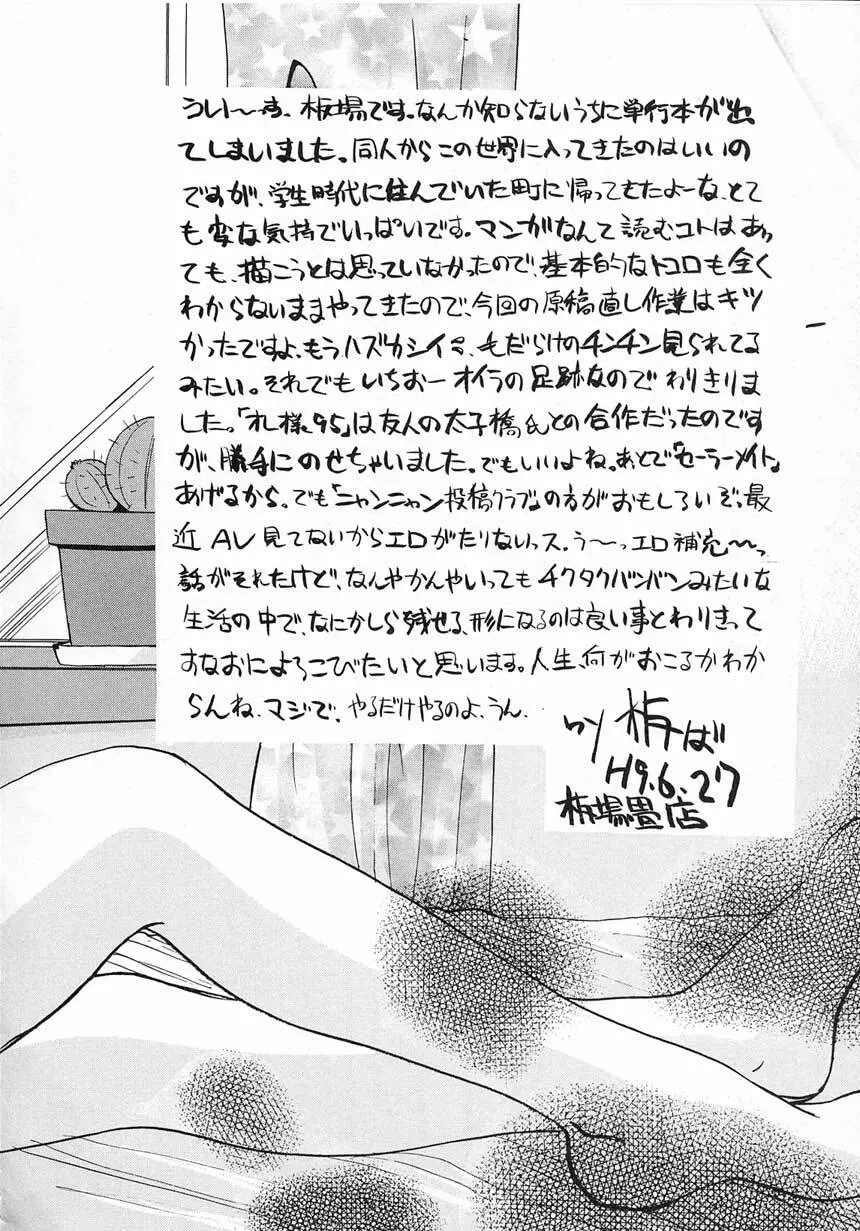 ういーす。板場です。なんか知らないうちに単行本が出
てしまいました。同人からこの世界に入ってきたのはいいの
ですが、学生時代に住んでいた町に帰ってきたよーな、とて
も変な気持でいっぱいです。マンガなんて読むコトはあっ
ても、描こうとは思っていなかったので、基本的なトコロも全く
わからないままやってきたので、今回の原稿直し作業はキツ
かったですよ、もうハズカシイ 毛だらけのチンチン見られてる
みたい。それでもいちおーオイラの足跡なのでわりきりま
した。「オレ様95」は友人の太子橋氏との合作だったのです
が、勝手にのせちゃいました。でもいいよね。あとで「セーラーメイト」
あげるから。でも「ニャンニャン投稿クラブ」の方がおもしろいぞっ最
近AV見てないからエロがたりないっス。う〜っエロ補充〜っ
話がそれたけど、なんやかんやいってもチクタクバンバンみたいな
生活の中で、なにかしら残せる、形になるのは良い事とわりきって
すなおによろこびたいと思います。人生、何がおこるかわか
らんね、マジで、やるだけやるのよ、うん、
by 板ば
H9.6.27
板場畳店